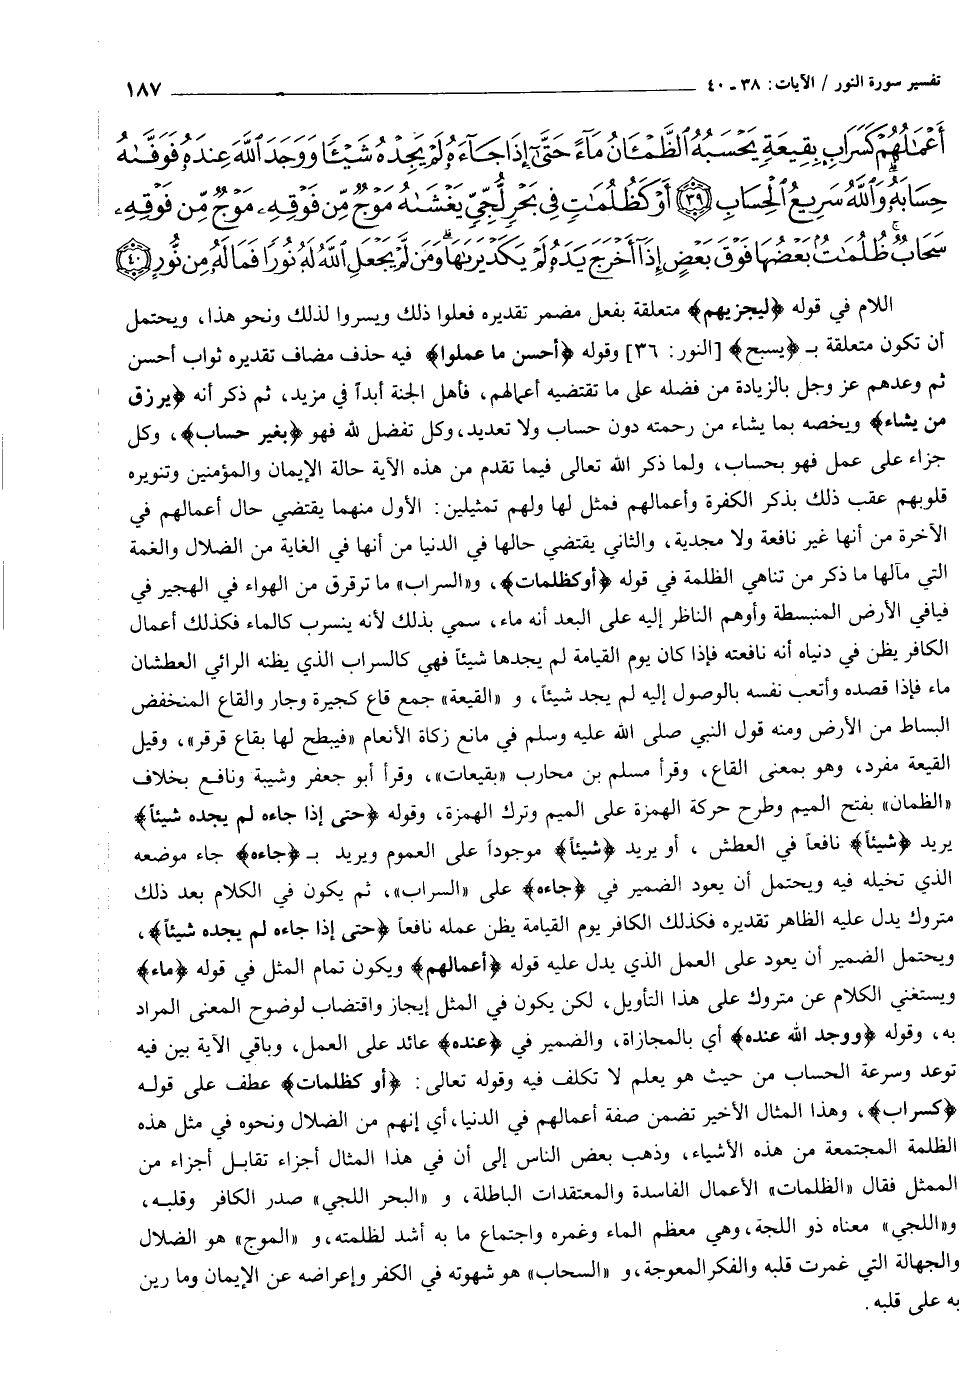 تفسير سورة النور / الآيات: ٣٨ ـ ٤٠ ١٨٧
أَعْمَالُهُمْ كَسَرَابٍ بِقِيعَةٍ يَحْسَبُهُ الظَّمْآنُ مَاءً حَتَّى إِذَا جَاءَهُ لَمْ يَجِدْهُ شَيْئًا وَوَجَدَ اللَّهَ عِندَهُ فَوَفَّاهُ
حِسَابَهُ وَاللَّهُ سَرِيعُ الْحِسَابِ ﴿٣٩﴾ أَوْ كَظُلُمَاتٍ فِي بَحْرٍ لُّجِّيٍّ يَغْشَاهُ مَوْجٌ مِّن فَوْقِهِ، مَوْجٌ مِّن فَوْقِهِ،
سَحَابٌ ظُلُمَاتٌ بَعْضُهَا فَوْقَ بَعْضٍ إِذَا أَخْرَجَ يَدَهُ لَمْ يَكَدْ يَرَاهَا وَمَن لَّمْ يَجْعَلِ اللَّهُ لَهُ نُورًا فَمَا لَهُ مِن نُّورٍ ﴿٤٠﴾
اللام في قوله ﴿ليجزيهم﴾ متعلقة بفعل مضمر تقديره فعلوا ذلك ويسروا لذلك ونحو هذا، ويحتمل
أن تكون متعلقة بـ ﴿يسبح﴾ [النور: ٣٦] وقوله ﴿أحسن ما عملوا﴾ فيه حذف مضاف تقديره ثواب أحسن
ثم وعدهم عز وجل بالزيادة من فضله على ما تقتضيه أعمالهم، فأهل الجنة أبداً في مزيد، ثم ذكر أنه ﴿يرزق
من يشاء﴾ ويخصه بما يشاء من رحمته دون حساب ولا تعديد، وكل تفضل لله فهو ﴿بغير حساب﴾، وكل
جزاء على عمل فهو بحساب، ولما ذكر الله تعالى فيما تقدم من هذه الآية حالة الإيمان والمؤمنين وتنويره
قلوبهم عقب ذلك بذكر الكفرة وأعمالهم فمثل لها ولهم تمثيلين: الأول منهما يقتضي حال أعمالهم في
الآخرة من أنها غير نافعة ولا مجدية، والثاني يقتضي حالها في الدنيا من أنها في الغاية من الضلال والغمة
التي مآلها ما ذكر من تناهي الظلمة في قوله ﴿أو كظلمات﴾، و«السراب» ما ترقرق من الهواء في الهجير في
فيافي الأرض المنبسطة وأوهم الناظر إليه على البعد أنه ماء، سمي بذلك لأنه ينسرب كالماء فكذلك أعمال
الكافر يظن في دنياه أنه نافعته فإذا كان يوم القيامة لم يجدها شيئاً فهي كالسراب الذي يظنه الرائي العطشان
ماء فإذا قصده وأتعب نفسه بالوصول إليه لم يجد شيئاً، و «القيعة» جمع قاع كجيرة وجار والقاع المنخفض
البساط من الأرض ومنه قول النبي صلى الله عليه وسلم في مانع زكاة الأنعام «فيبطح لها بقاع قرقر»، وقيل
القيعة مفرد، وهو بمعنى القاع، وقرأ مسلم بن محارب «بقيعات»، وقرأ أبو جعفر وشيبة ونافع بخلاف
«الظمان» بفتح الميم وطرح حركة الهمزة على الميم وترك الهمزة، وقوله ﴿حتى إذا جاءه لم يجده شيئاً﴾
يريد ﴿شيئاً﴾ نافعاً في العطش ، أو يريد ﴿شيئاً﴾ موجوداً على العموم ويريد بـ ﴿جاءه﴾ جاء موضعه
الذي تخيله فيه ويحتمل أن يعود الضمير في ﴿جاءه﴾ على «السراب»، ثم يكون في الكلام بعد ذلك
متروك يدل عليه الظاهر تقديره فكذلك الكافر يوم القيامة يظن عمله نافعاً ﴿حتى إذا جاءه لم يجده شيئاً﴾،
ويحتمل الضمير أن يعود على العمل الذي يدل عليه قوله ﴿أعمالهم﴾ ويكون تمام المثل في قوله ﴿ماء﴾
ويستغني الكلام عن متروك على هذا التأويل، لكن يكون في المثل إيجاز واقتضاب لوضوح المعنى المراد
به، وقوله ﴿ووجد الله عنده﴾ أي بالمجازاة، والضمير في ﴿عنده﴾ عائد على العمل، وباقي الآية بين فيه
توعد وسرعة الحساب من حيث هو يعلم لا تكلف فيه وقوله تعالى: ﴿أو كظلمات﴾ عطف على قوله
﴿كسراب﴾، وهذا المثال الأخير تضمن صفة أعمالهم في الدنيا، أي إنهم من الضلال ونحوه في مثل هذه
الظلمة المجتمعة من هذه الأشياء، وذهب بعض الناس إلى أن في هذا المثال أجزاء تقابل أجزاء من
الممثل فقال «الظلمات» الأعمال الفاسدة والمعتقدات الباطلة، و «البحر اللجي» صدر الكافر وقلبه،
و«اللجي» معناه ذو اللجة، وهي معظم الماء وغمره واجتماع ما به أشد لظلمته، و «الموج» هو الضلال
والجهالة التي غمرت قلبه والفكر المعوجة، و «السحاب» هو شهوته في الكفر وإعراضه عن الإيمان وما رين
به على قلبه.